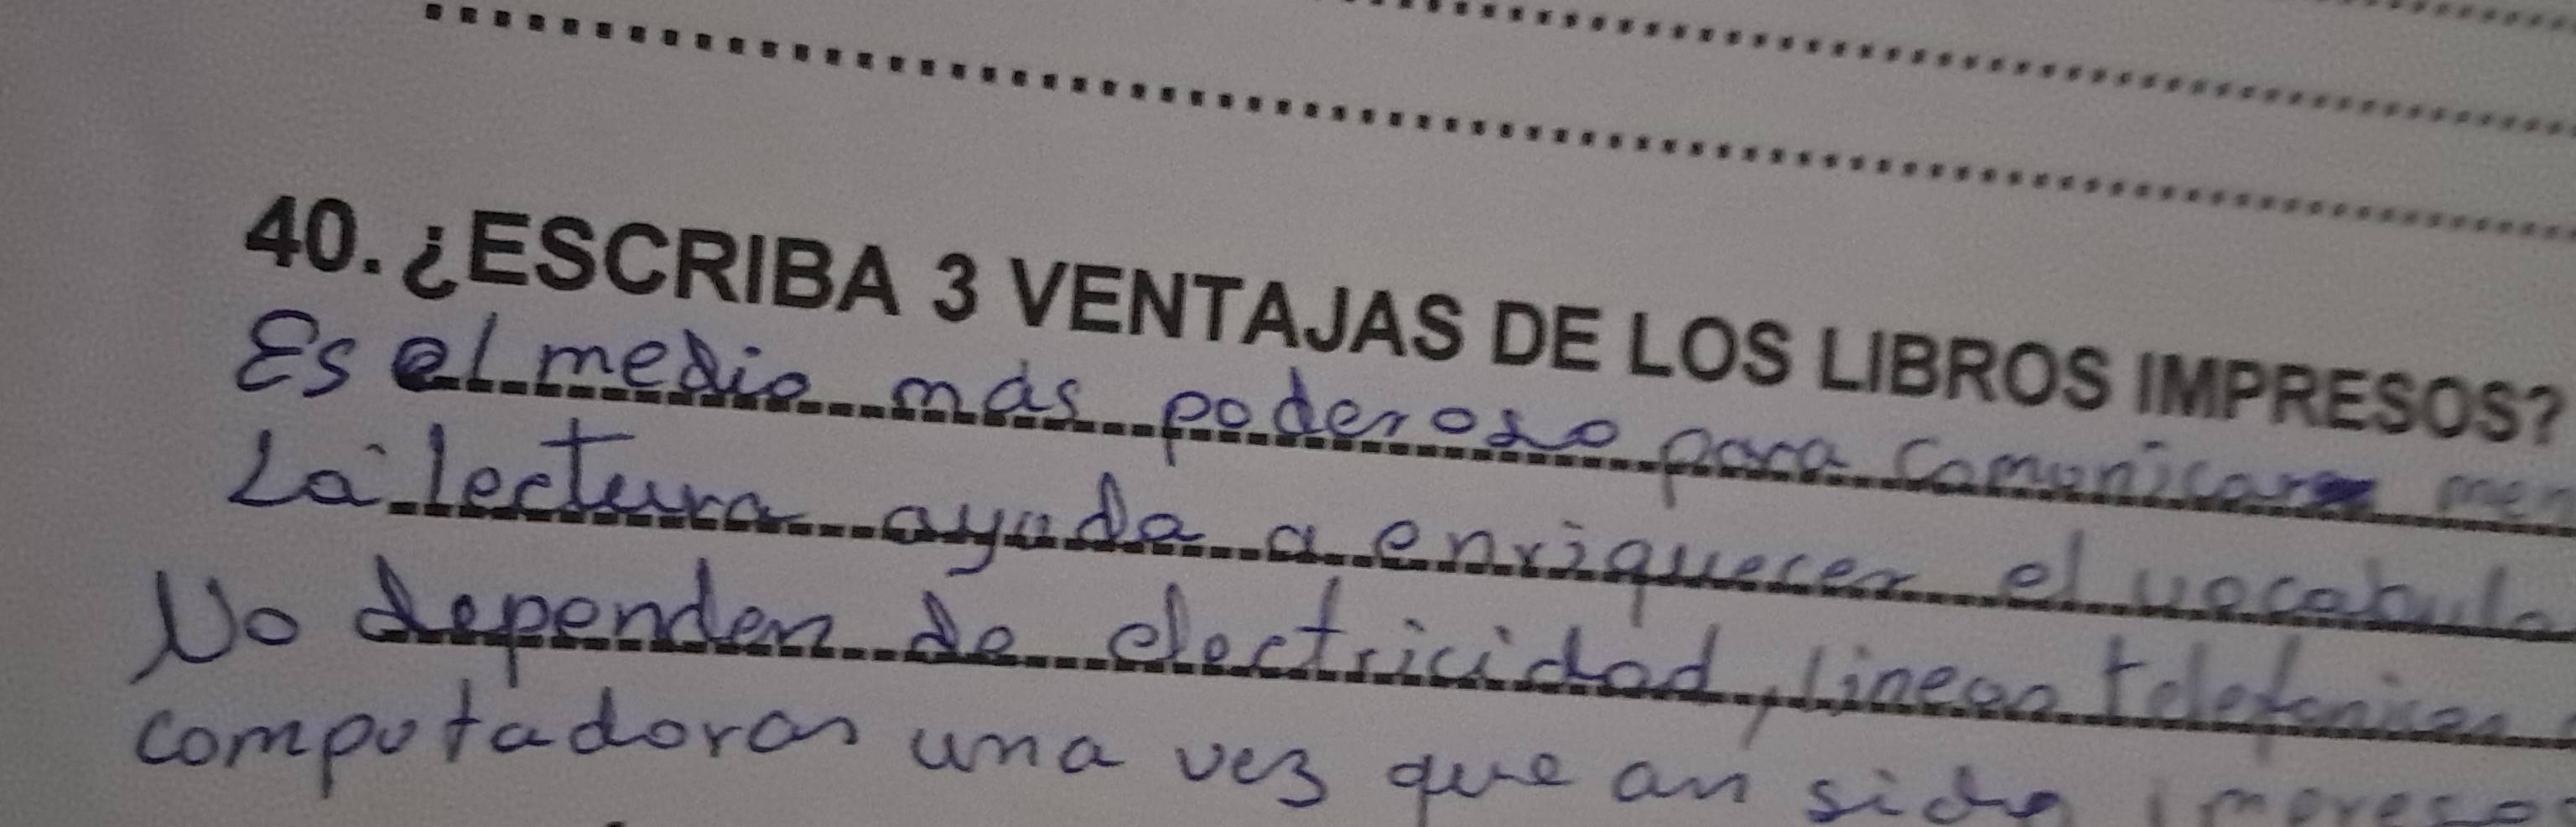 40. ¿ESCRIBA 3 VENTAJAS DE LOS LIBROS IMPRESOS?
Es el medio más poderoso para comunicar men
La lectura ayuda a enriquecer el vocabula
No dependen de electricidad, lineas telefonicas
computadoras una vez que an sido impreso